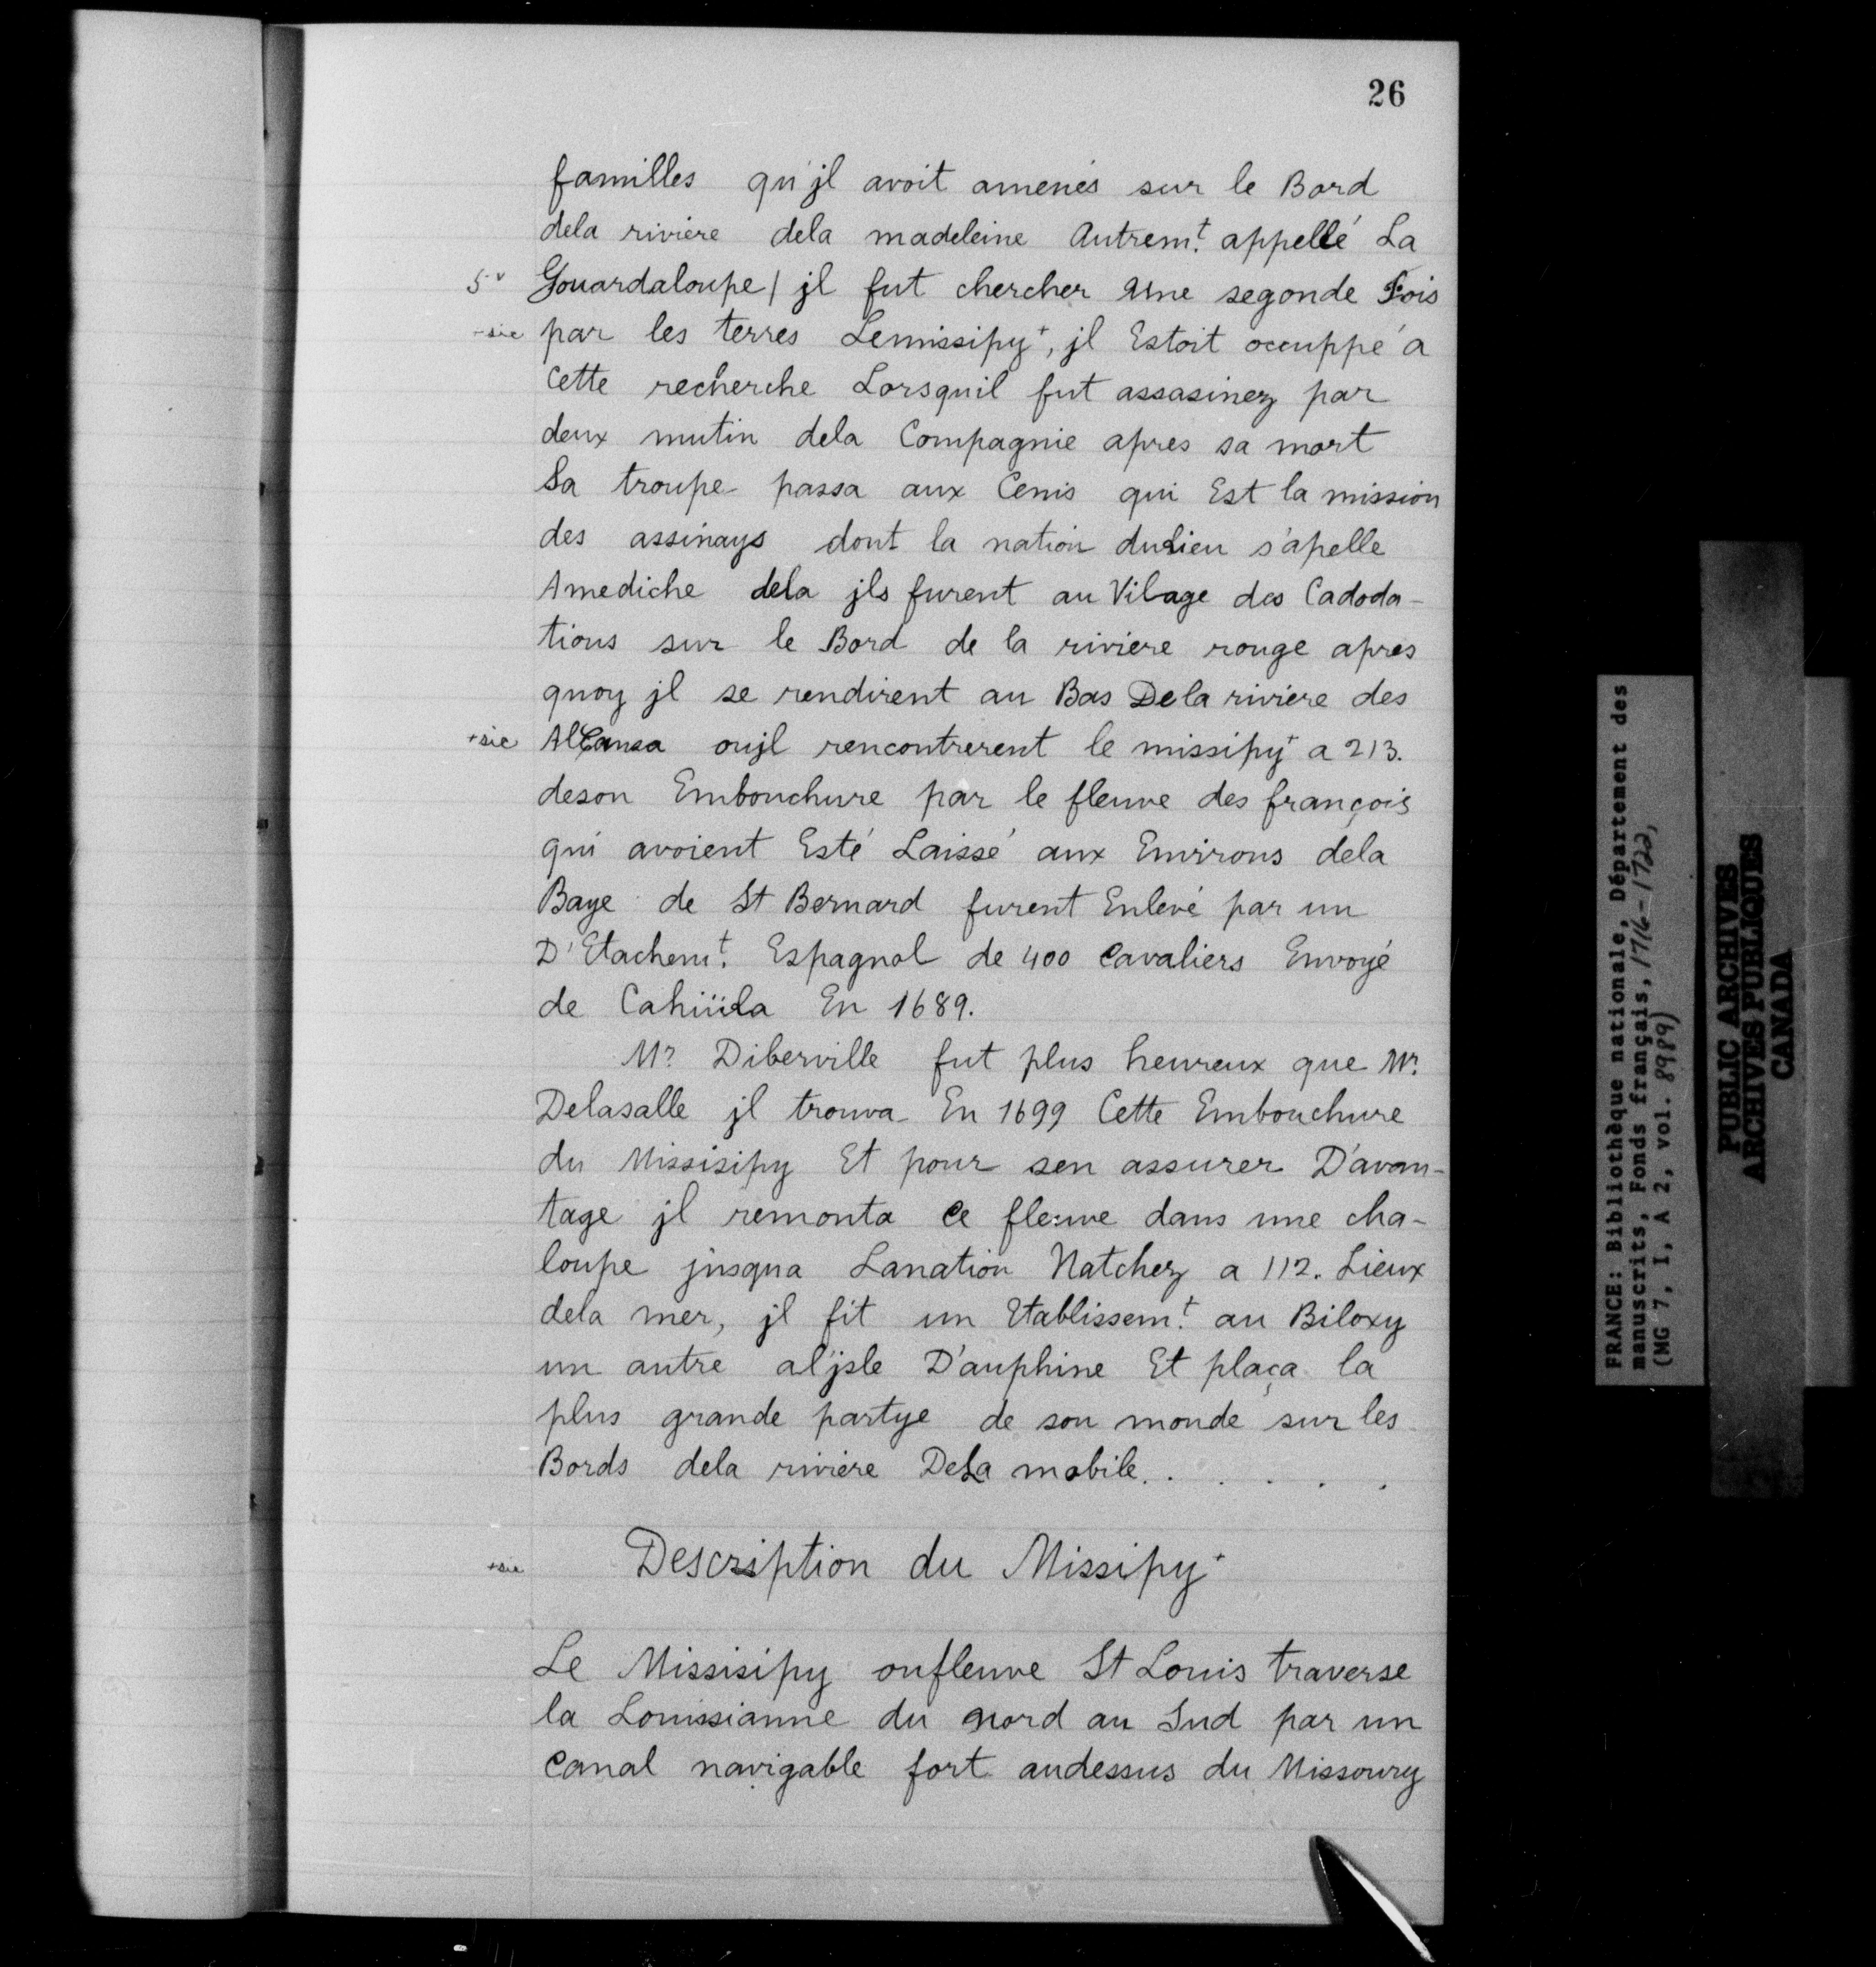 26
familles qu'jl avoit amenés sur le Bord
dela riviere dela madeleine Autrem.t appellé La
5v Gouardaloupe / jl fut chercher Une segonde Fois
+sic par les terres Lemissipy+, jl Estoit occuppé a
Cette recherche Lorsquil fut assasinez par
deux mutin dela Compagnie apres sa mort
Sa troupe passa aux Cenis qui Est la mission
des assinays dont la nation duLieu s'apelle
Amediche dela jls furent au Vilage des Cadoda-
tions sur le Bord de la riviere rouge apres
quoy jl se rendirent au Bas De la riviere des
+sic AlCansa oujl rencontrerent le missipy+ a 213.
deson Embouchure par le fleuve des françois
qui avoient Esté Laissé aux Environs dela
Baye de St Bernard furent Enlevé par un
D'Etachem.t Espagnol de 400 Cavaliers Envoyé
de Cahiüila En 1689.
Mr. Diberville fut plus heureux que Mr.
Delasalle jl trouva En 1699 Cette Embouchure
du Missisipy Et pour sen assurer D'avan-
tage jl remonta Ce fleuve dans une cha-
loupe jusqua Lanation Natchez a 112. Lieux
dela mer, jl fit un Etablissem.t au Biloxy
un autre al'jsle D'auphine Et plaça la
plus grande partye de son monde sur les
Bords dela riviere DeLa mobile. . . . . .
+sic Description du Missipy+
Le Missisipy oufleuve St Louis traverse
la Louissianne du nord au Sud par un
Canal navigable fort audessus du Missoury
FRANCE: Bibliothèque nationale, Département des
manuscrits, Fonds français, 1716-1722,
(MG 7, I, A 2, vol. 8989)
PUBLIC ARCHIVES
ARCHIVES PUBLIQUES
CANADA